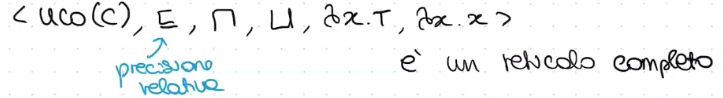 < uco(C), ⊑, ⊓, ⊔, λx.T, λx.x >
precisione
relativa
è un reticolo completo